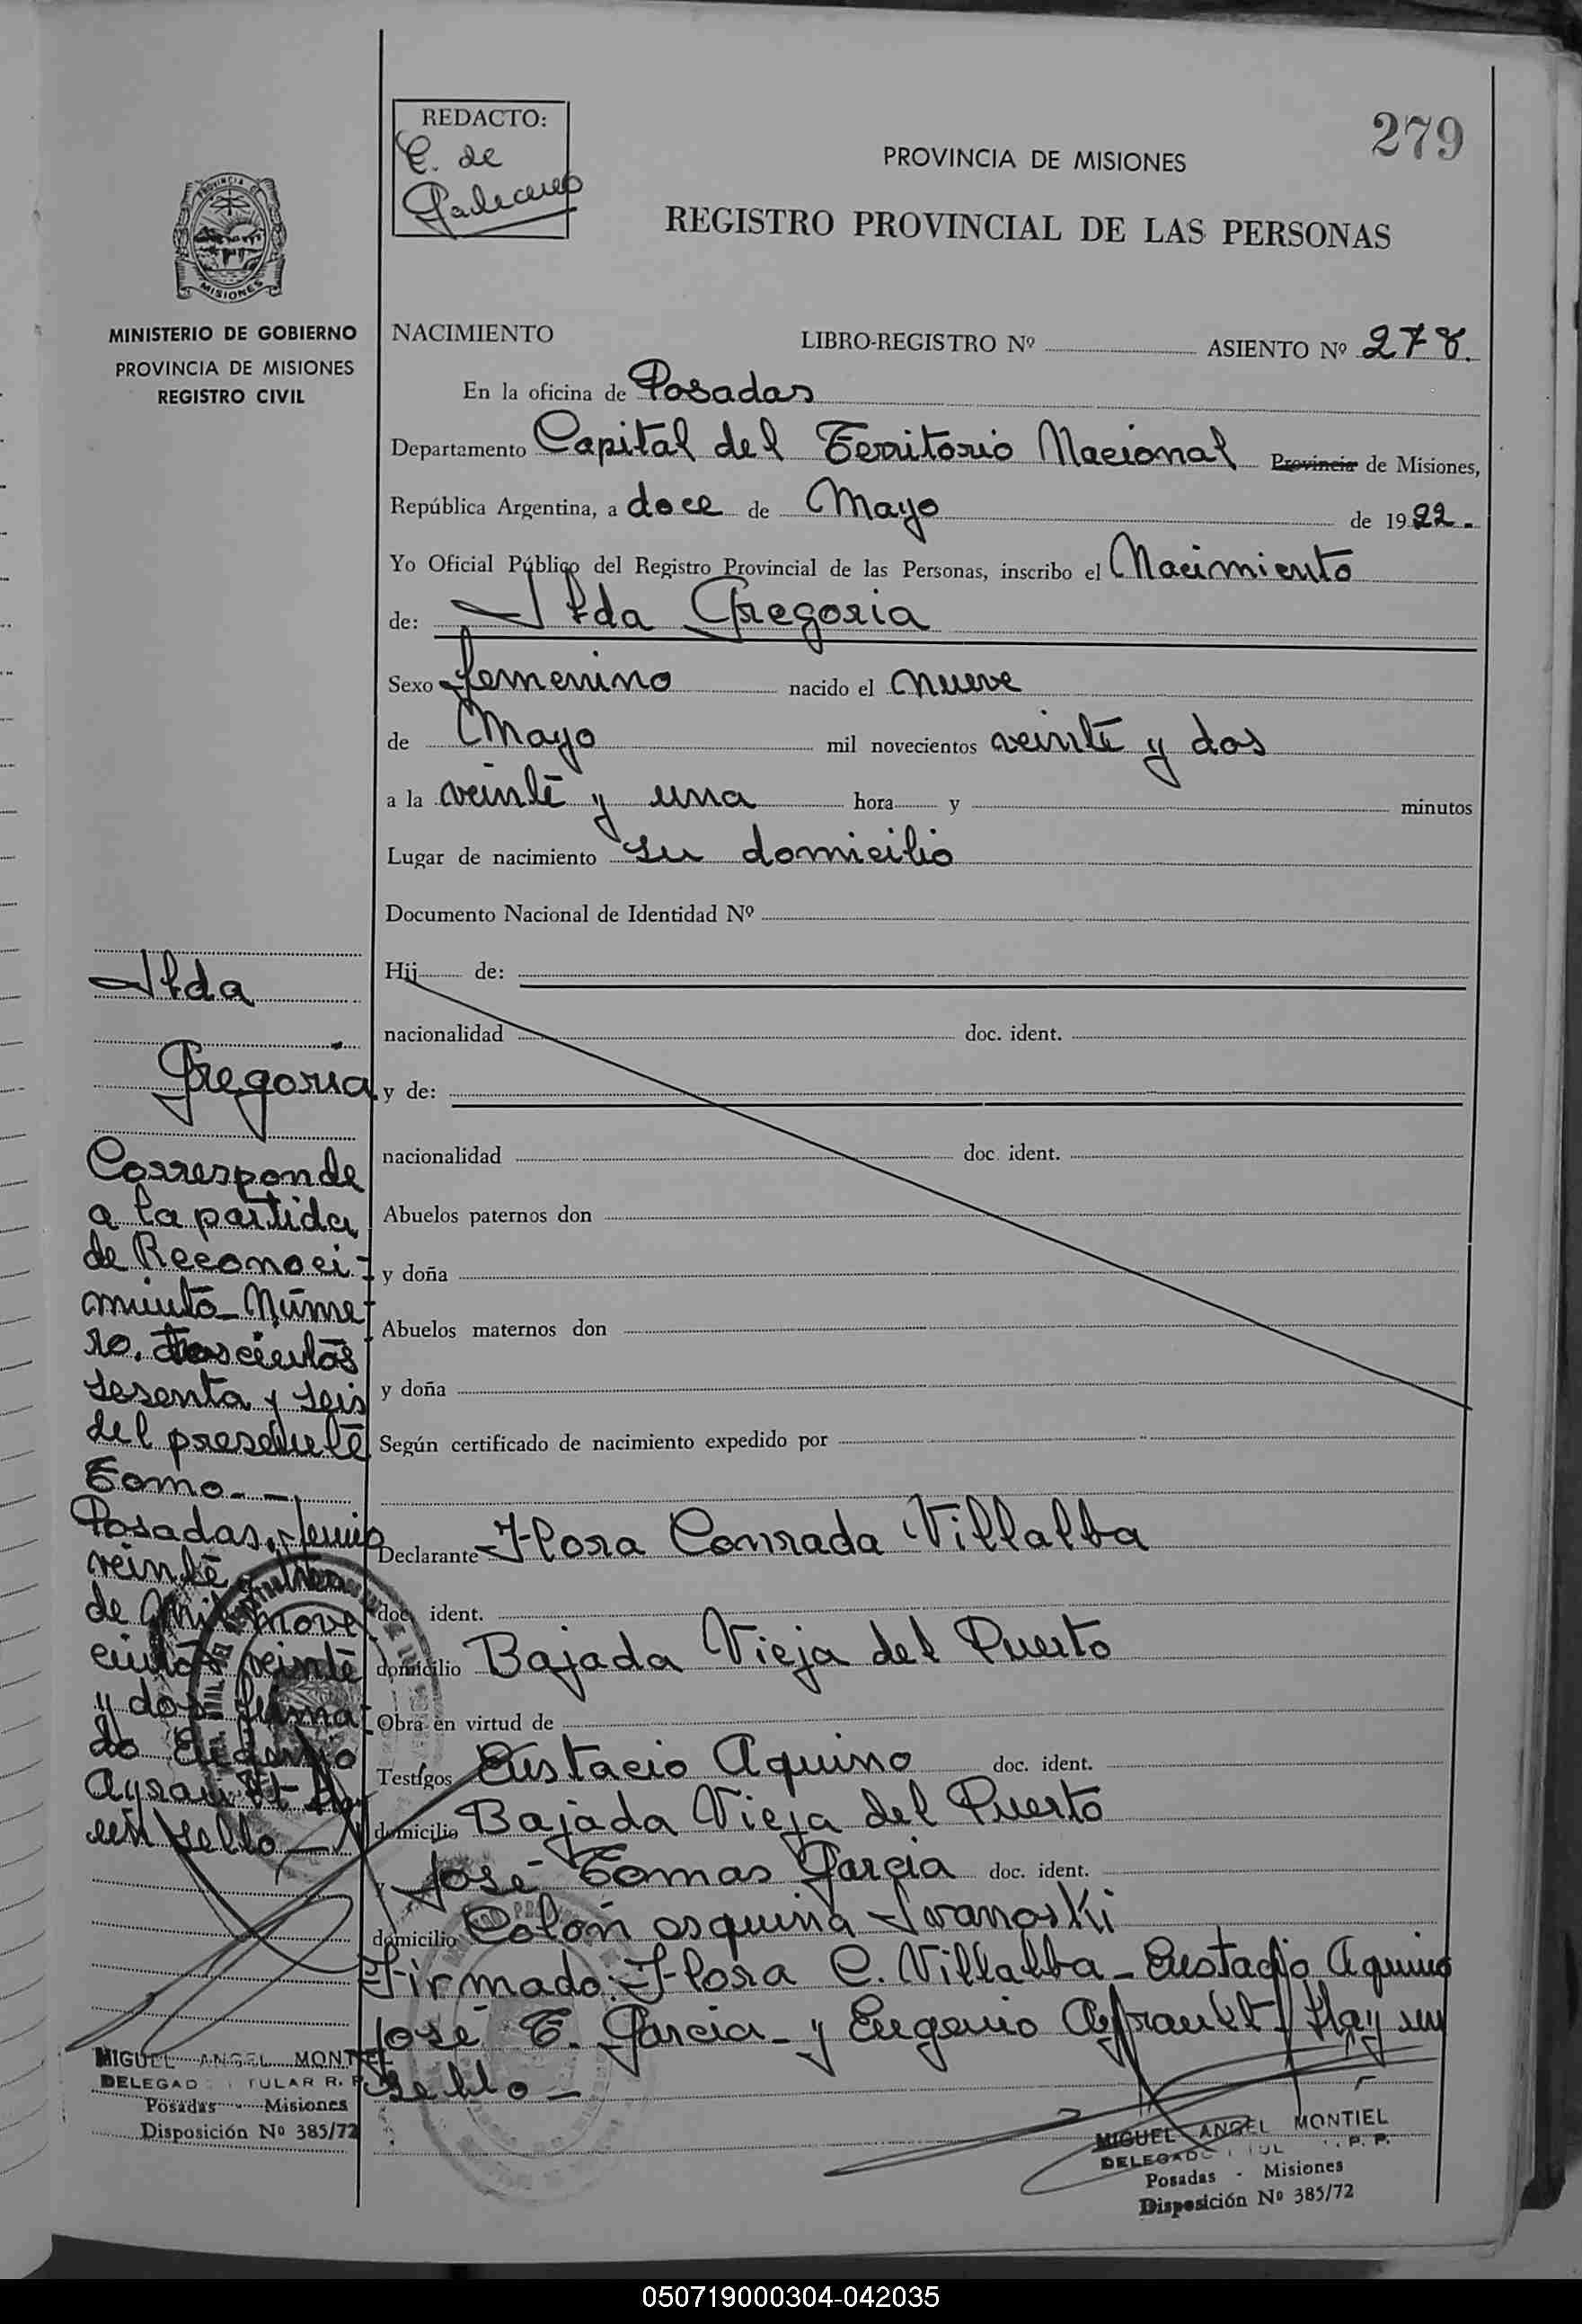 279
REDACTO:
C. de
PROVINCIA DE MISIONES
REGISTRO PROVINCIAL DE LAS PERSONAS
PROVINCIA DE
MISIONES
MINISTERIO DE GOBIERNO
PROVINCIA DE MISIONES
REGISTRO CIVIL
NACIMIENTO LIBRO-REGISTRO Nº ASIENTO Nº 278.
En la oficina de Posadas
Departamento Capital del Territorio Nacional Provincia de Misiones,
República Argentina, a doce de Mayo de 1922.-
Yo Oficial Público del Registro Provincial de las Personas, inscribo el Nacimiento
de: Ilda Gregoria
Sexo femenino nacido el nueve
de Mayo mil novecientos veinte y dos
a la veinte y una hora y minutos
Lugar de nacimiento su domicilio
Documento Nacional de Identidad Nº
Hij de:
nacionalidad doc. ident.
y de:
nacionalidad doc. ident.
Abuelos paternos don
y doña
Abuelos maternos don
y doña
Según certificado de nacimiento expedido por
Declarante Flora Conrada Villalba
doc. ident.
domicilio Bajada Vieja del Puerto
Obra en virtud de
Testigos Eustacio Aquino doc. ident.
domicilio Bajada Vieja del Puerto
y José Tomas Garcia doc. ident.
domicilio Colón esquina Ivanoski
Firmado: Flora C. Villalba - Eustacio Aquino
José T. Garcia - y Eugenio Hay un
sello -
MIGUEL ANGEL MONTIEL
Posadas - Misiones
Disposición Nº 385/72
Ilda
Gregoria.
Corresponde
a la partida
de Reconoci-
miento Núme-
ro. doscientos
sesenta y seis
del presente
Tomo. -
Posadas, Junio
veinte y tres
de Mil nove
cientos veinte
y dos firma-
do
un sello -
MIGUEL ANGEL MONTIEL
DELEGADO TITULAR R. P.
Posadas - Misiones
Disposición Nº 385/72
050719000304-042035